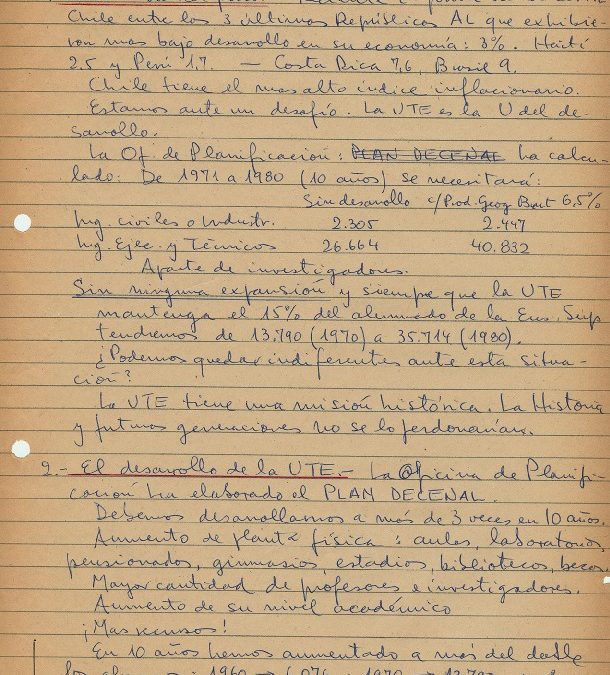 Chile entre las 3 últimas Repúblicas AL que exhibie-
ron mas bajo desarollo en su economía: 3%. Haití
2.5 y Perú 1,7. — Costa Rica 7,6, Brasil 9.
Chile tiene el mas alto indice inflacionario.
Estamos ante un desafío. La UTE es la U del de-
sarollo.
La Of. de Planificación: PLAN DECENAL ha calcu-
lado: De 1971 a 1980 (10 años) se necesitará:
Sin desarollo c/Prod. Geog Brut 6,5%
Ing. civiles o Industr. 2.305 2.447
Ing. Ejec. y Técnicos 26.664 40.832
Aparte de investigadores.
Sin ninguna expansión y siempre que la UTE
mantenga el 15% del alumnado de la Ens. Sup
tendremos de 13.790 (1970) a 35.714 (1980).
¿Podemos quedar indiferentes ante esta situa-
ción?
La UTE tiene una misión histórica. La Historia
y futuras generaciones no se lo perdonarían.
2.- El desarollo de la UTE.- La Oficina de Planifi-
cación ha elaborado el PLAN DECENAL.
Debemos desarollarnos a más de 3 veces en 10 años.
Aumento de planta física: aulas, laboratorios,
pensionados, gimnasios, estadios, bibliotecas, becas.
Mayor cantidad de profesores e investigadores.
Aumento de su nivel académico
¡Mas recursos!
En 10 años hemos aumentado a más del doble
1960 → 1970 →